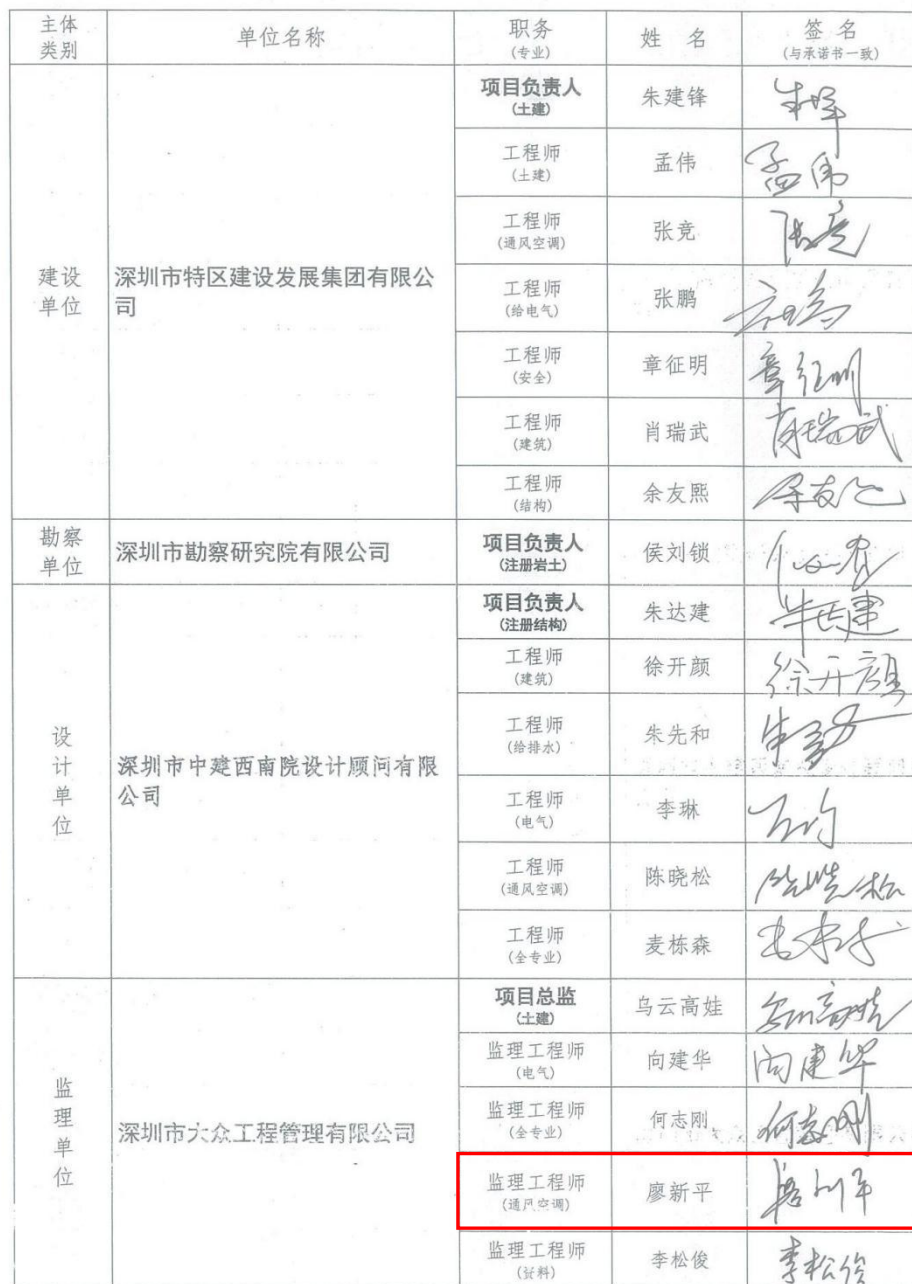 主体类别 单位名称 职务(专业) 姓 名 签 名(与承诺书一致)
建设单位 深圳市特区建设发展集团有限公司
项目负责人(土建) 朱建锋
工程师(土建) 孟伟 孟伟
工程师(通风空调) 张竞
工程师(给电气) 张鹏
工程师(安全) 章征明 章征明
工程师(建筑) 肖瑞武 肖瑞武
工程师(结构) 余友熙
勘察单位 深圳市勘察研究院有限公司 项目负责人(注册岩土) 侯刘锁
设计单位 深圳市中建西南院设计顾问有限公司
项目负责人(注册结构) 朱达建
工程师(建筑) 徐开颜 徐开颜
工程师(给排水) 朱先和
工程师(电气) 李琳
工程师(通风空调) 陈晓松 陈晓松
工程师(全专业) 麦栋森
监理单位 深圳市大众工程管理有限公司
项目总监(土建) 乌云高娃
监理工程师(电气) 向建华 向建华
监理工程师(全专业) 何志刚 何志刚
监理工程师(通风空调) 廖新平
监理工程师(资料) 李松俊 李松俊